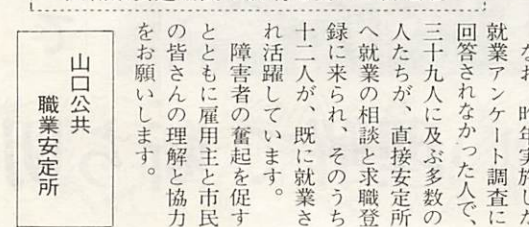 なお、昨年実施した
就業アンケート調査に
回答されなかった人で、
三十九人に及ぶ多数の
人たちが、直接安定所
へ就業の相談と求職登
録に来られ、そのうち
十二人が、既に就業さ
れ活躍しています。
障害者の奮起を促す
とともに雇用主と市民
の皆さんの理解と協力
をお願いします。
山口公共
職業安定所